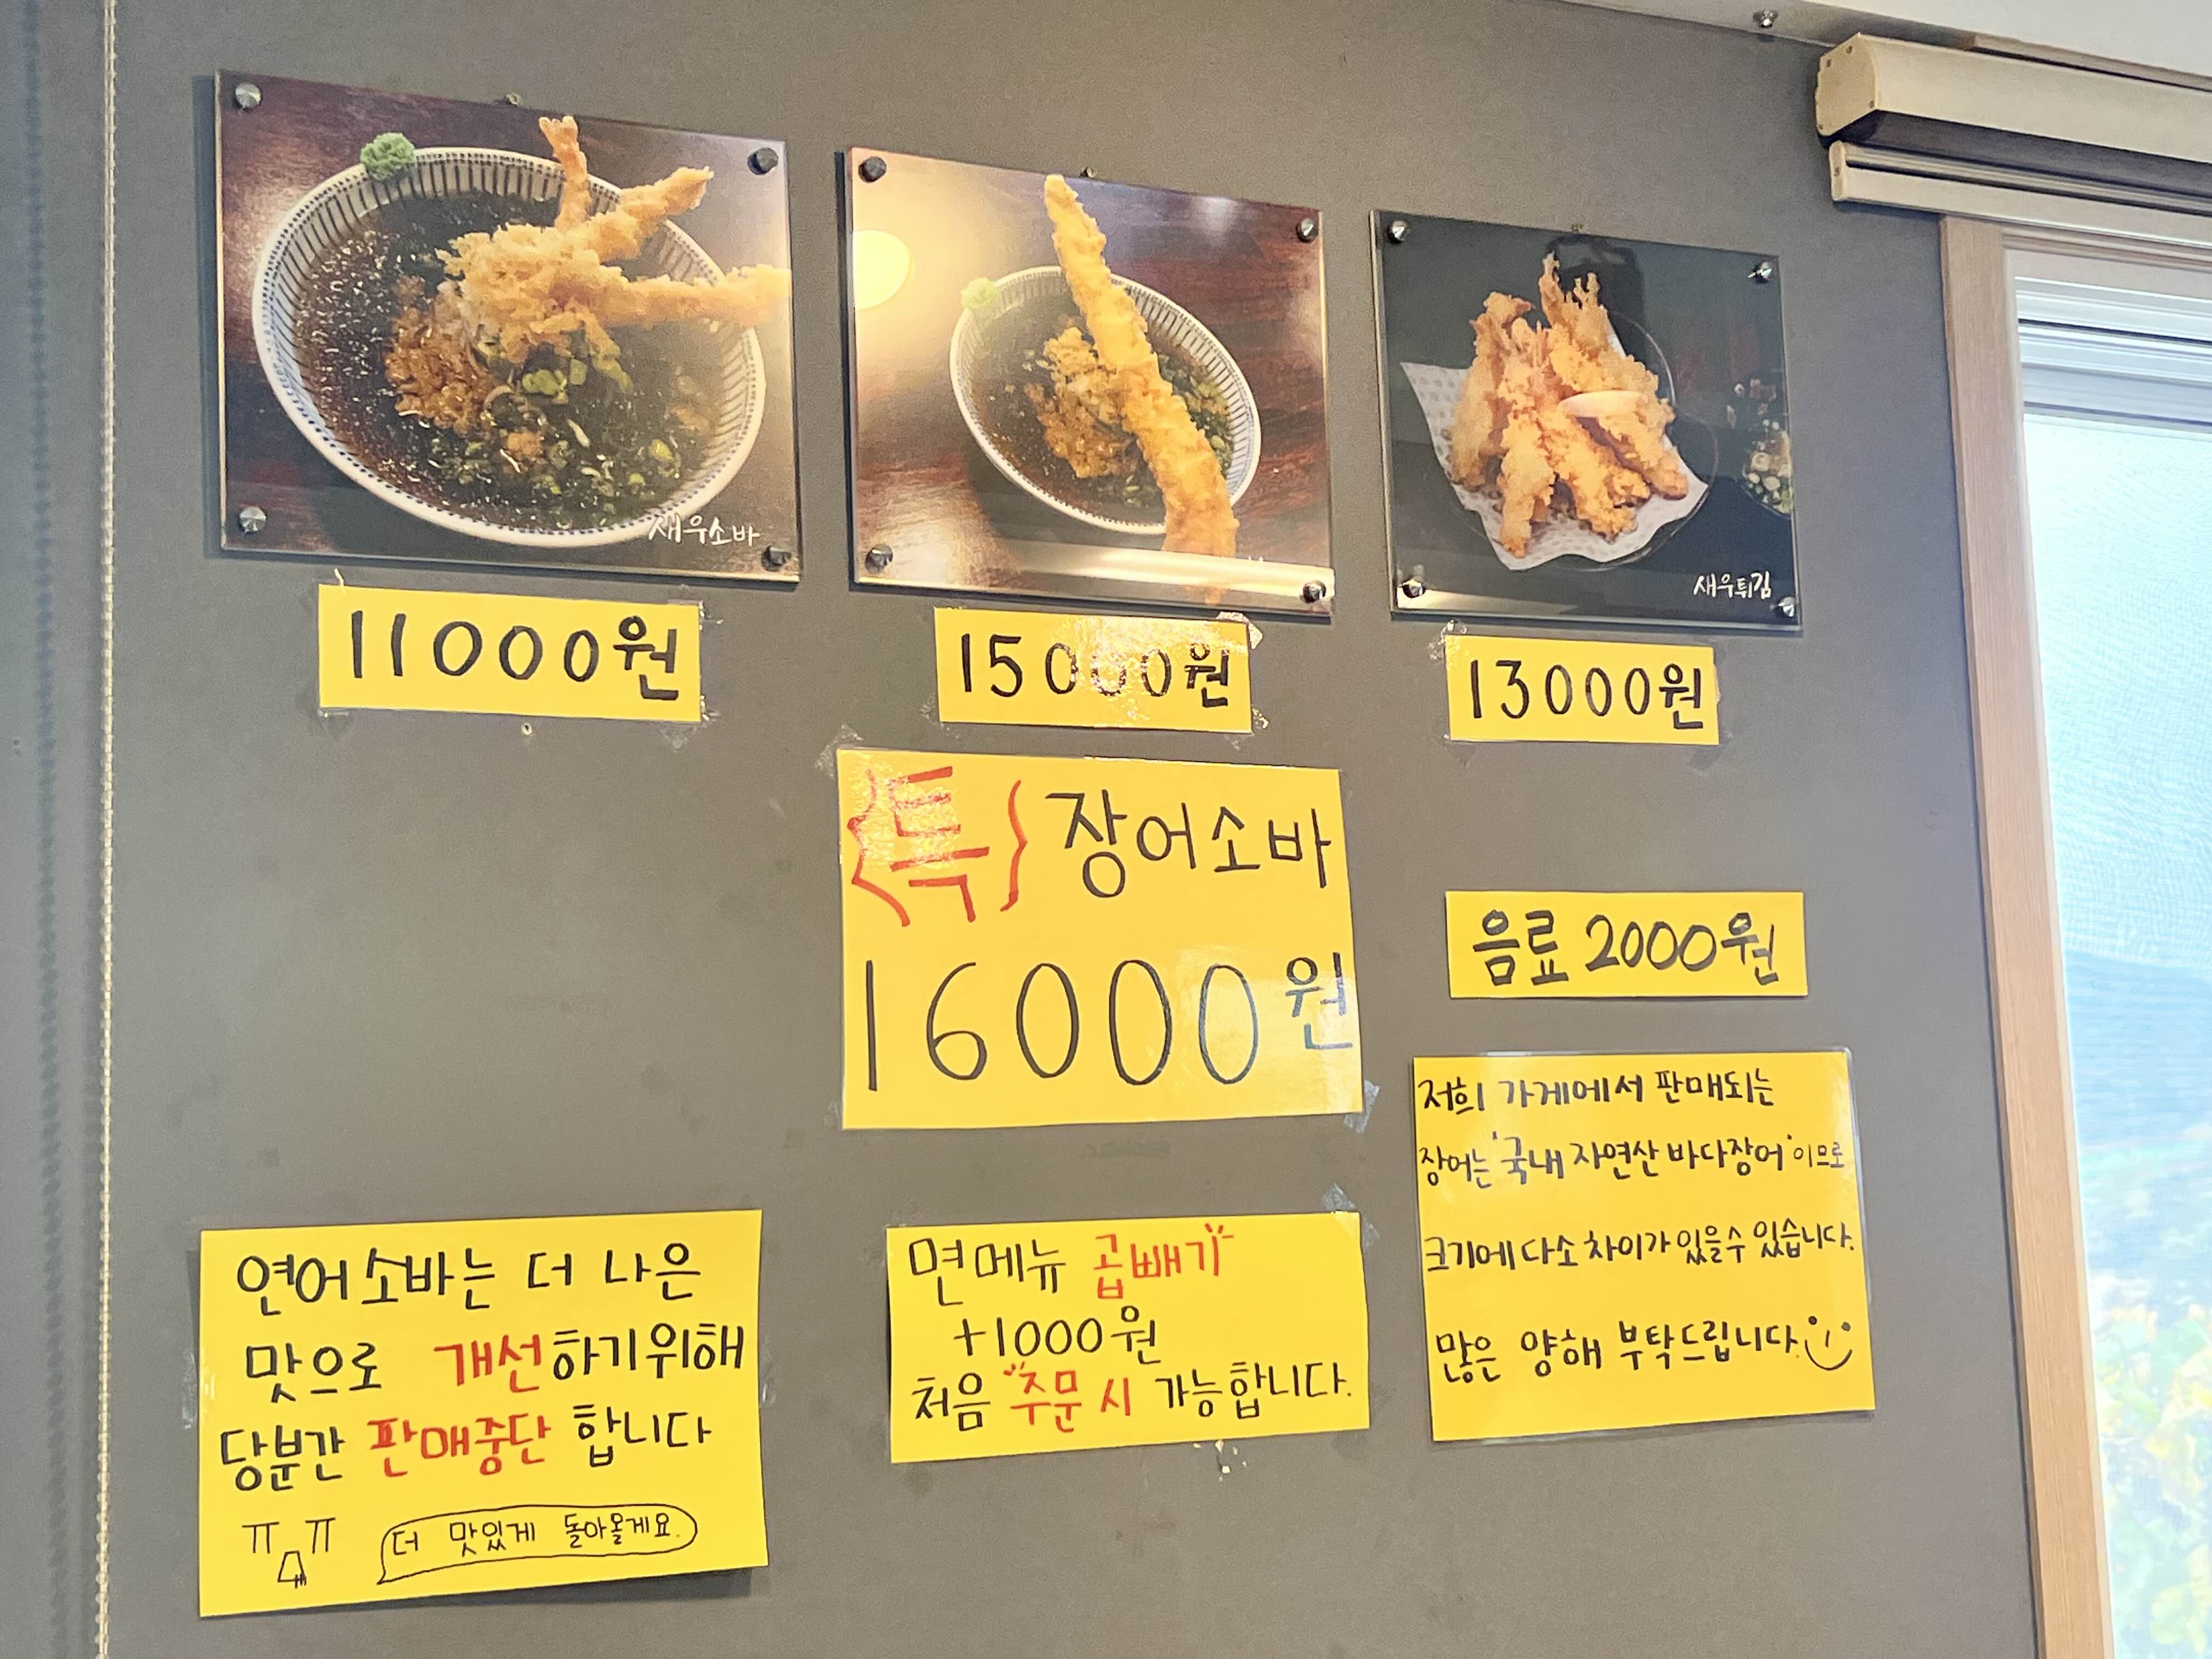 새우소바
새우튀김
11000원
15000원
13000원
{특} 장어소바
16000원
음료 2000원
저희 가게에서 판매되는
장어는 '국내 자연산 바다장어' 이므로
크기에 다소 차이가 있을수 있습니다.
많은 양해 부탁드립니다.
연어소바는 더 나은
맛으로 개선하기위해
당분간 판매중단 합니다
ㅠ ㅠ
더 맛있게 돌아올게요.
면메뉴 곱빼기
+1000원
처음 주문 시 가능합니다.